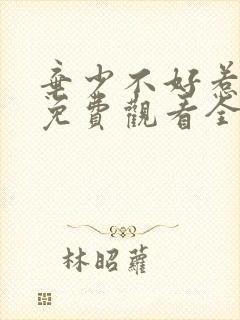 棄少不好惹
免費觀看全
林昭蘿